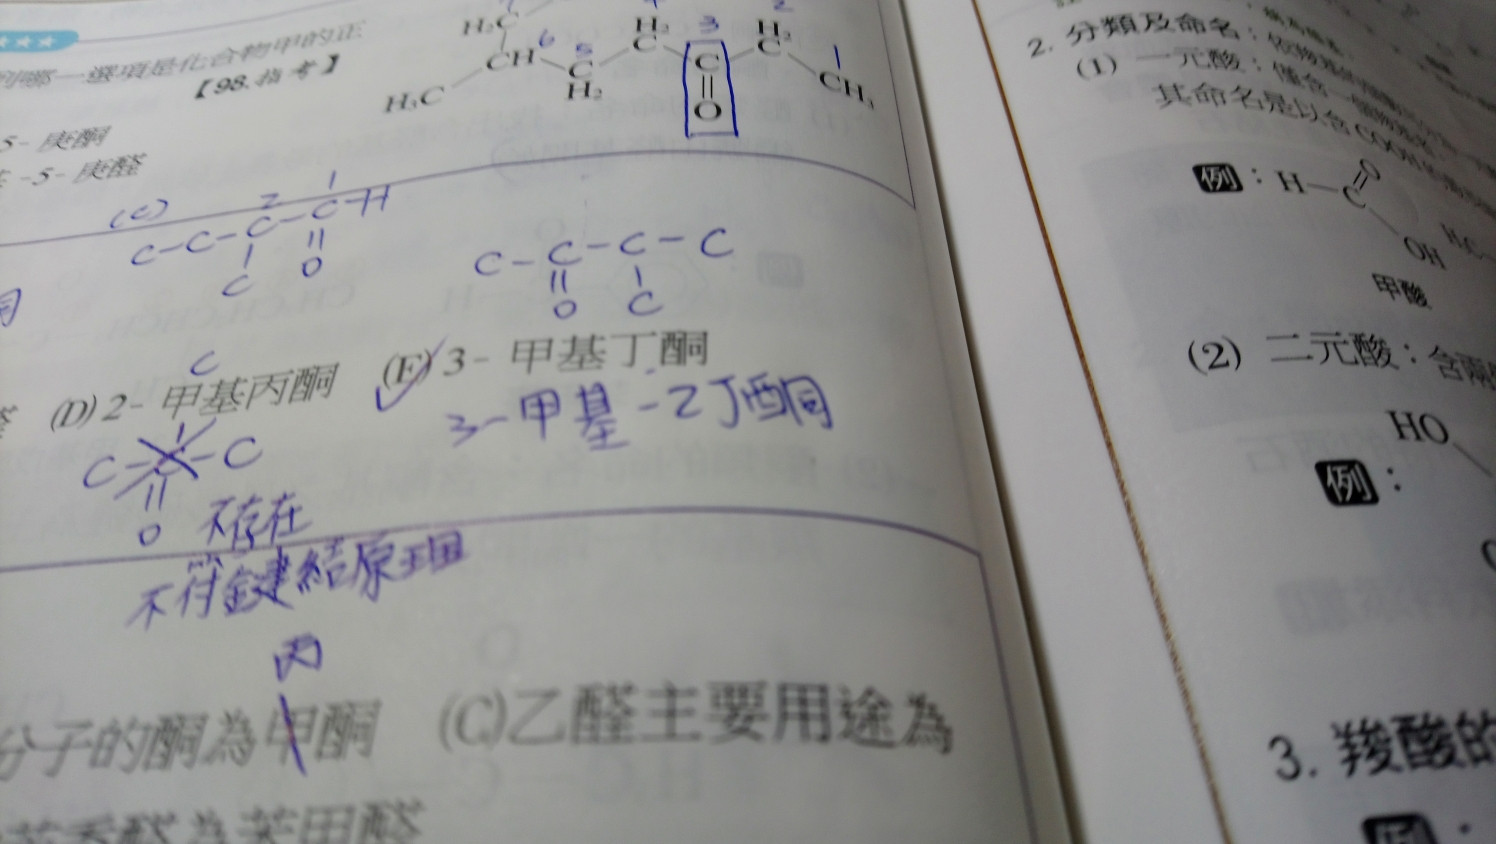 列哪一選項是化合物甲的正
【98.指考】
5-庚酮
-5-庚醛
H₃C
CH
H₂C
C
H₂
H₂
C
C
O
H₂
C
CH₃
7 6 5 4 3 2 1
(C)
2 1
C-C-C-C-H
C O
C-C-C-C
O C
C
(D) 2-甲基丙酮
(E) 3-甲基丁酮
3-甲基-2丁酮
C-C-C
O
不存在
不符鍵結原理
丙
分子的酮為甲酮 (C)乙醛主要用途為
醛為苯甲醛
2. 分類及命名:
(1) 一元酸:僅含一個
其命名是以含COOH
例:H-C
O
OH
H₃C
甲酸
(2) 二元酸:含兩
HO
例:
3. 羧酸的
例: